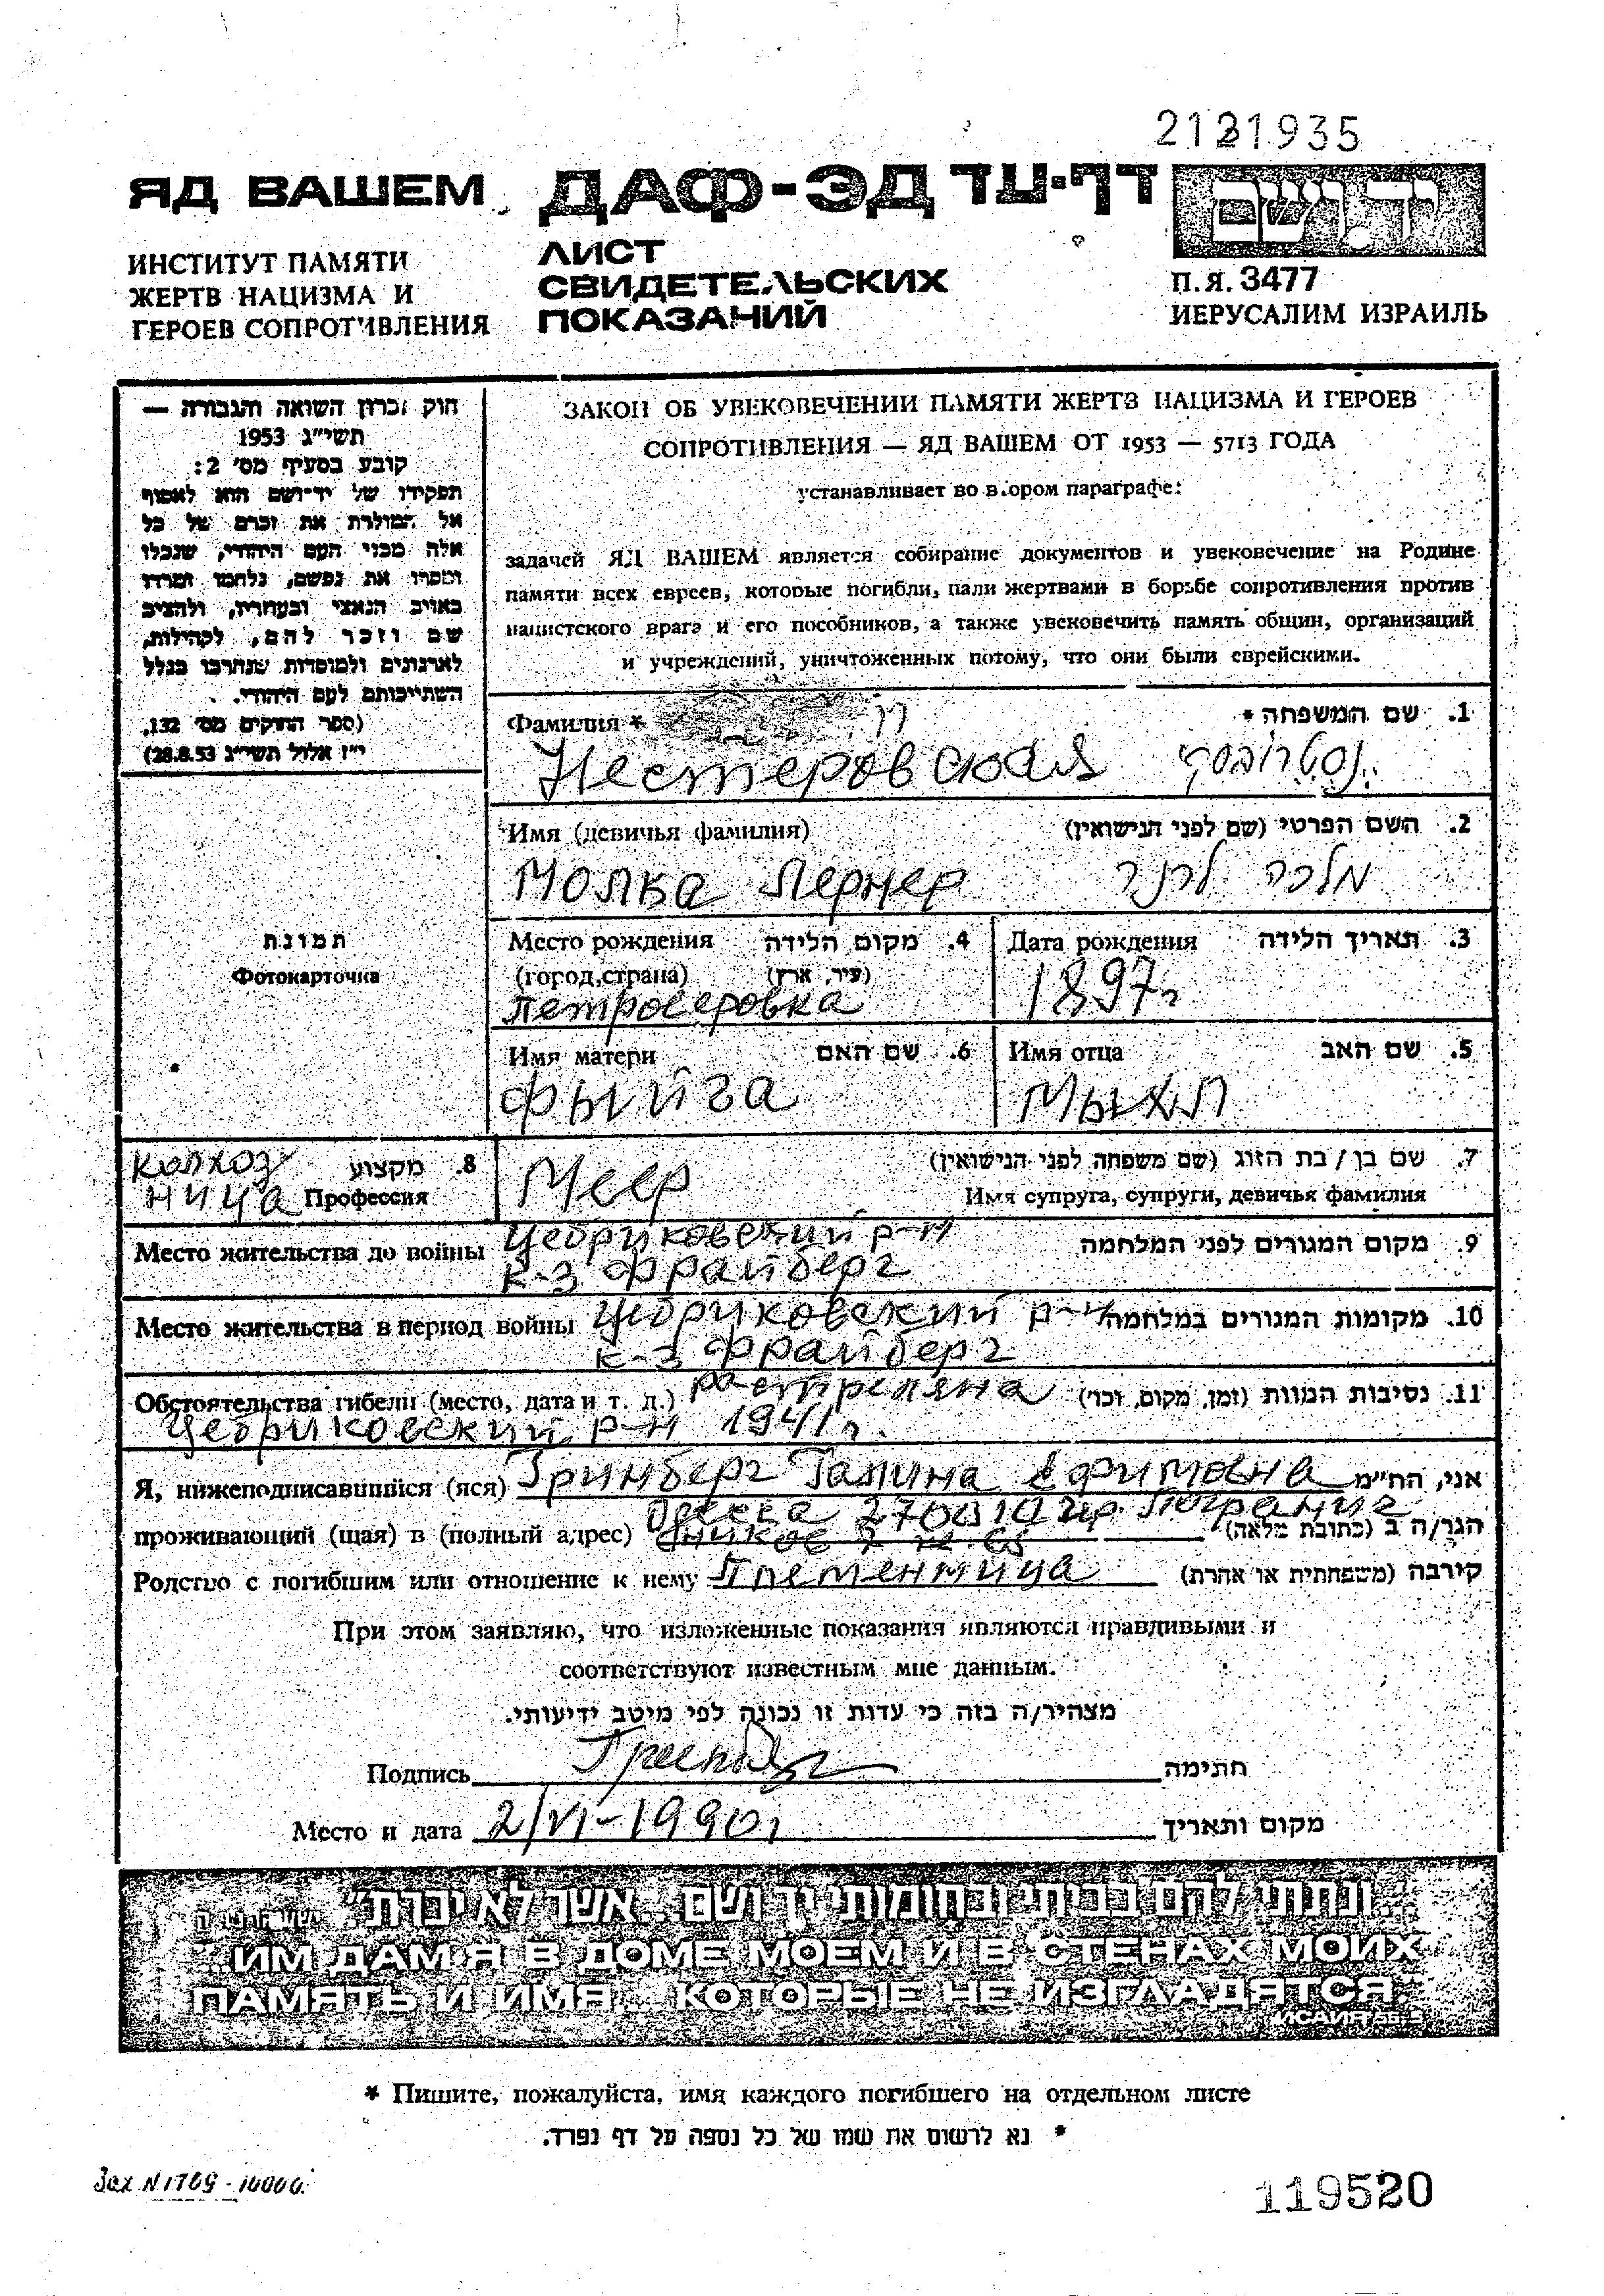 2121935
ЯД ВАШЕМ
ДАФ-ЭД דף-עד
יד ושם
ИНСТИТУТ ПАМЯТИ
ЖЕРТВ НАЦИЗМА И
ГЕРОЕВ СОПРОТИВЛЕНИЯ
ЛИСТ
СВИДЕТЕЛЬСКИХ
ПОКАЗАНИЙ
П.Я. 3477
ИЕРУСАЛИМ ИЗРАИЛЬ
חוק זכרון השואה והגבורה —
תשי"ג 1953
קובע בסעיף מס' 2:
תפקידו של יד-ושם הוא לאסוף
אל המולדת את זכרם של כל
אלה מבני העם היהודי, שנפלו
ומסרו את נפשם, נלחמו ומרדו
באויב הנאצי ובעוזריו, ולהציב
שם וזכר להם, לקהילות,
לארגונים ולמוסדות שנחרבו בגלל
השתייכותם לעם היהודי.
(ספר החוקים מס' 132,
י"ז אלול תשי"ג 28.8.53)
ЗАКОН ОБ УВЕКОВЕЧЕНИИ ПАМЯТИ ЖЕРТВ НАЦИЗМА И ГЕРОЕВ
СОПРОТИВЛЕНИЯ — ЯД ВАШЕМ ОТ 1953 — 5713 ГОДА
устанавливает во втором параграфе:
задачей ЯД ВАШЕМ является собирание документов и увековечение на Родине
памяти всех евреев, которые погибли, пали жертвами в борьбе сопротивления против
нацистского врага и его пособников, а также увековечить память общин, организаций
и учреждений, уничтоженных потому, что они были еврейскими.
Фамилия * 1. שם המשפחה *
Нестеровская נסטרובסקי
Имя (девичья фамилия) 2. השם הפרטי (שם לפני הנישואין)
Молка Лернер מלכה לרנר
תמונה
Фотокарточка
Место рождения 4. מקום הלידה
(город, страна) (עיר, ארץ)
Петроверовка
Дата рождения 3. תאריך הלידה
1897г
Имя матери 6. שם האם
Фыйга
Имя отца 5. שם האב
Мыхл
колхоз 8. מקצוע
ница Профессия
Меер 7. שם בן / בת הזוג (שם משפחה לפני הנישואין)
Имя супруга, супруги, девичья фамилия
Место жительства до войны Цебриковский р-н 9. מקום המגורים לפני המלחמה
к-з Фрайберг
Место жительства в период войны Цебриковский р-н 10. מקומות המגורים במלחמה
к-з Фрайберг
Обстоятельства гибели (место, дата и т. д.) Растреляна 11. נסיבות המוות (זמן, מקום, וכו')
Цебриковский р-н 1941г.
Я, нижеподписавшийся (яся) Гринберг Галина Ефимовна אני, הח"מ
Одесса 270010 пр. Погранич
проживающий (щая) в (полный адрес) ников 7 הגר/ה ב (כתובת מלאה)
Родство с погибшим или отношение к нему Племенница קירבה (משפחתית או אחרת)
При этом заявляю, что изложенные показания являются правдивыми и
соответствуют известным мне данным.
מצהיר/ה בזה כי עדות זו נכונה לפי מיטב ידיעותי.
Подпись חתימה
Место и дата 2/VI-1990г מקום ותאריך
"...ונתתי להם בביתי ובחומותי יד ושם... אשר לא יכרת"
"ИМ ДАМ Я В ДОМЕ МОЕМ И В СТЕНАХ МОИХ
ПАМЯТЬ И ИМЯ... КОТОРЫЕ НЕ ИЗГЛАДЯТСЯ"
ИСАИЯ 56:5
* Пишите, пожалуйста, имя каждого погибшего на отдельном листе
* נא לרשום את שמו של כל נספה על דף נפרד.
Зак N 1769 - 10000.
119520